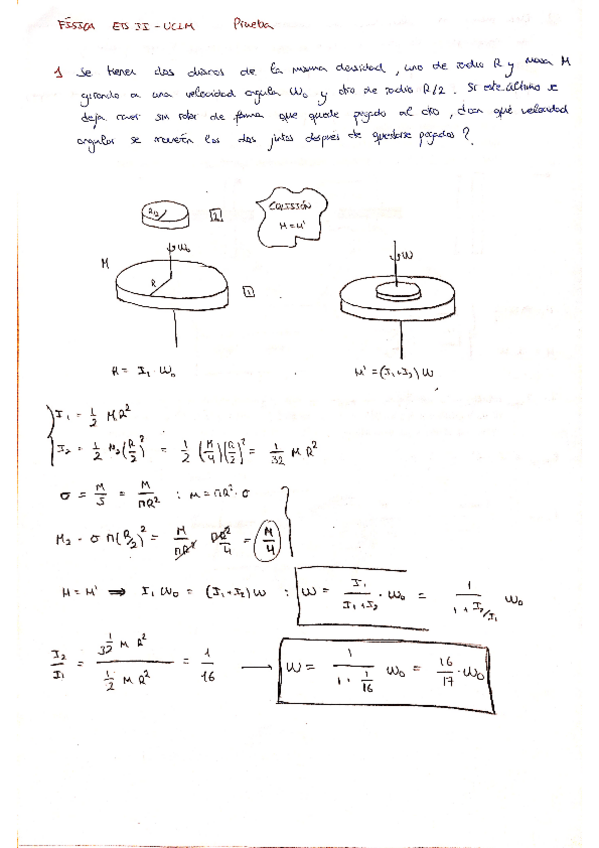 FÍSICA ETS II - UCLM Prueba
1 Se tienen dos discos de la misma densidad, uno de radio R y masa M
girando a una velocidad angular ω₀ y otro de radio R/2. Si este último se
deja caer sin rotar de forma que quede pegado al otro, ¿con qué velocidad
angular se moverán los dos juntos después de quedarse pegados?
R/2 2
COLISIÓN
M = M'
ω₀
M
R
1
ω
I₁ · ω₀
M' = (I₁+I₂) ω
I₁ = 1/2 MR²
I₂ = 1/2 M₂ (R/2)² = 1/2 (M/4)(R/2)² = 1/32 MR²
σ = M/S = M/πR² : M = πR²·σ
M₂ = σ π(R/2)² = M/πR² πR²/4 = M/4
M = M' ⟹ I₁ ω₀ = (I₁+I₂) ω : ω = I₁/(I₁+I₂) · ω₀ = 1/(1+I₂/I₁) ω₀
I₂/I₁ = (1/32 MR²)/(1/2 MR²) = 1/16 → ω = 1/(1+1/16) ω₀ = 16/17 · ω₀